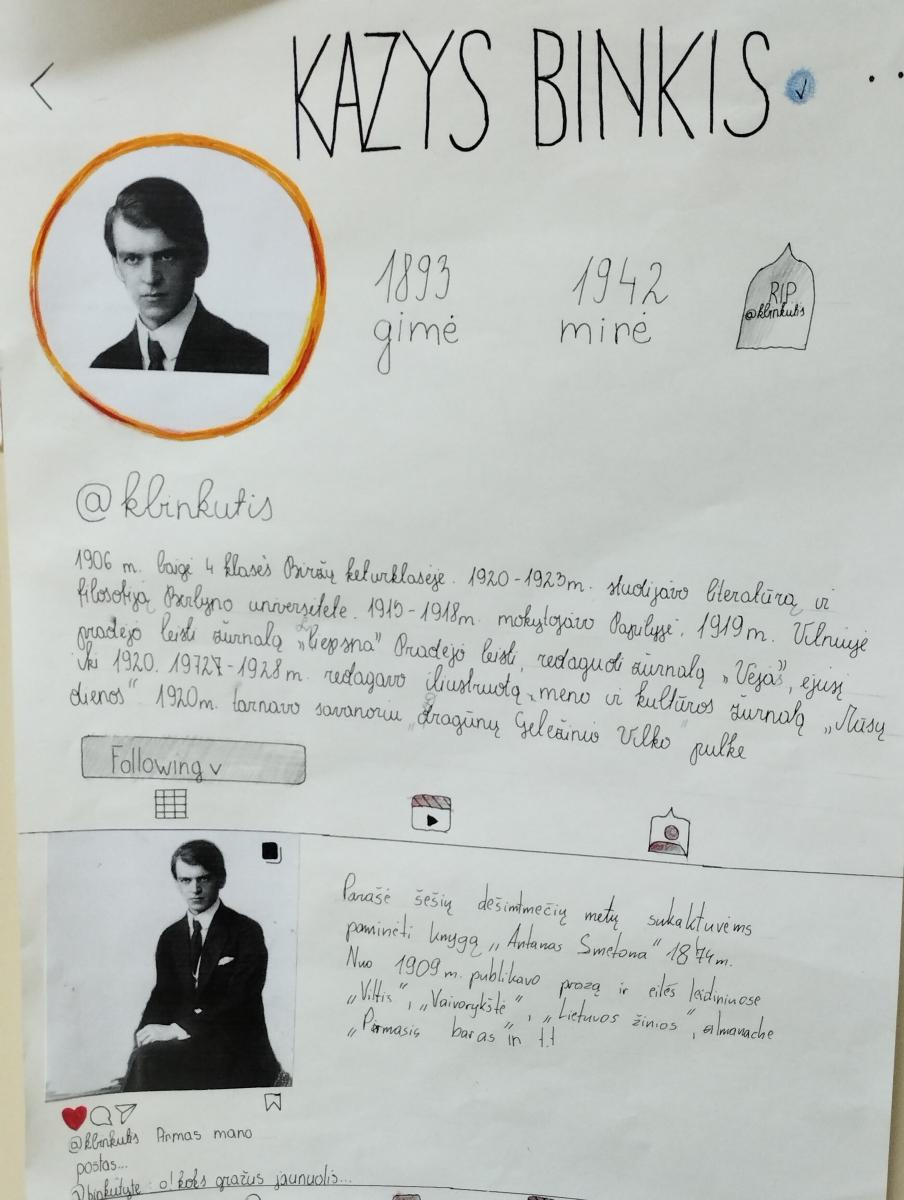 KAZYS BINKIS
1893
gimė
1942
mirė
RIP
@kbinkutis
@kbinkutis
1906 m. baigė 4 klasės Biržų keturklasėje. 1920-1923m. studijavo literatūrą ir
filosofiją Berlyno universitete. 1915-1918m. mokytojavo Papilyje. 1919m. Vilniuje
pradėjo leisti žurnalą „Liepsna" Pradėjo leisti, redaguoti žurnalą „Vėjas", ėjusį
iki 1920. 19727-1928m. redagavo iliustruotą meno ir kultūros žurnalą „Mūsų
dienos" 1920m. tarnavo savanoriu „Dragūnų Geležinio Vilko" pulke
Following v
Parašė šešių dešimtmečių metų sukaktuvėms
paminėti knygą „Antanas Smetona" 1874m.
Nuo 1909m. publikavo prozą ir eilės leidiniuose
„Viltis", „Vaivorykštė", „Lietuvos žinios", almanache
„Pirmasis baras" in t.t
@kbinkutis Pirmas mano
postas...
@binkutyte: o! koks gražus jaunuolis...